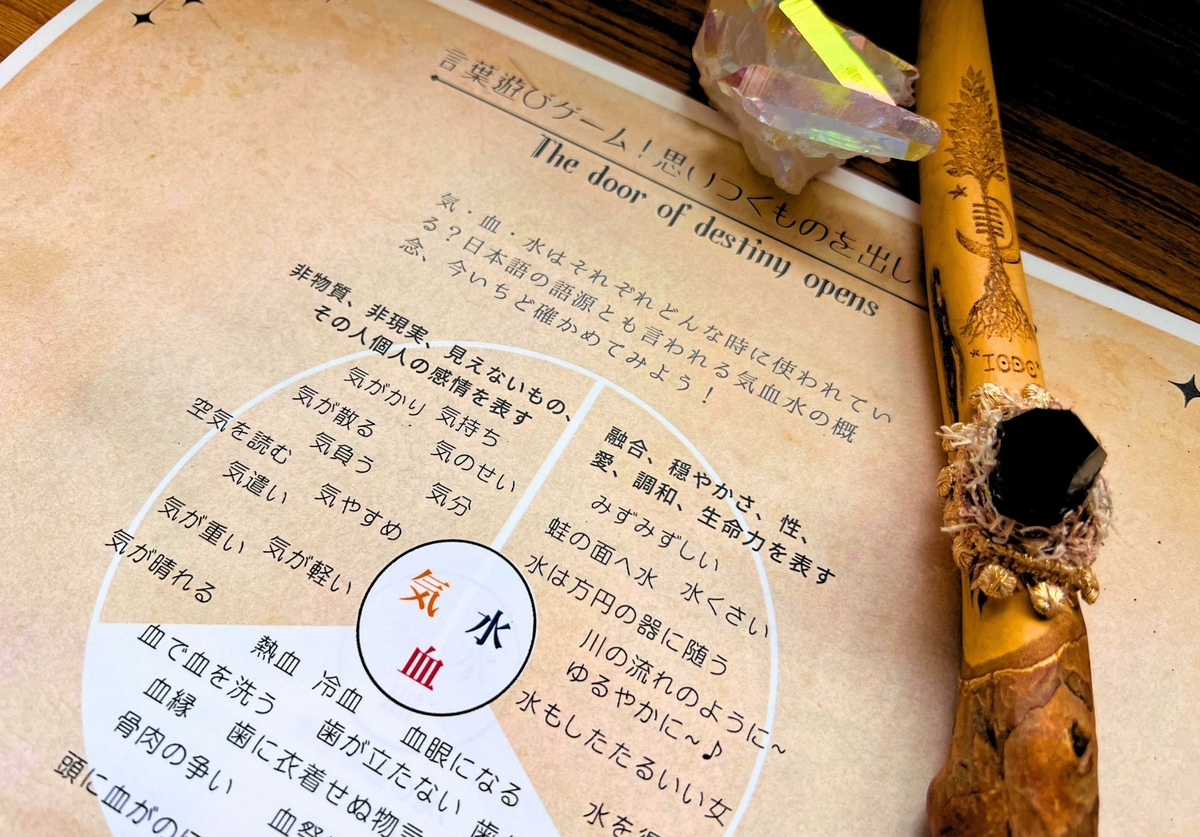 言葉遊びゲーム！思いつくものを出し
The door of destiny opens
気・血・水はそれぞれどんな時に使われてい
る？日本語の語源とも言われる気血水の概
念、今いちど確かめてみよう！
非物質、非現実、見えないもの、
その人個人の感情を表す
気がかり 気持ち
気が散る 気のせい
空気を読む 気負う 気分
気遣い 気やすめ
気が重い 気が軽い
気が晴れる
融合、穏やかさ、性、
愛、調和、生命力を表す
みずみずしい
蛙の面へ水 水くさい
水は方円の器に随う
川の流れのように~
ゆるやかに~♪
水もしたたるいい女
水を
気
水
血
熱血 冷血 血眼になる
血で血を洗う 歯が立たない
血縁 歯に衣着せぬ物言
骨肉の争い
頭に血がのぼ
血祭
*IODO*